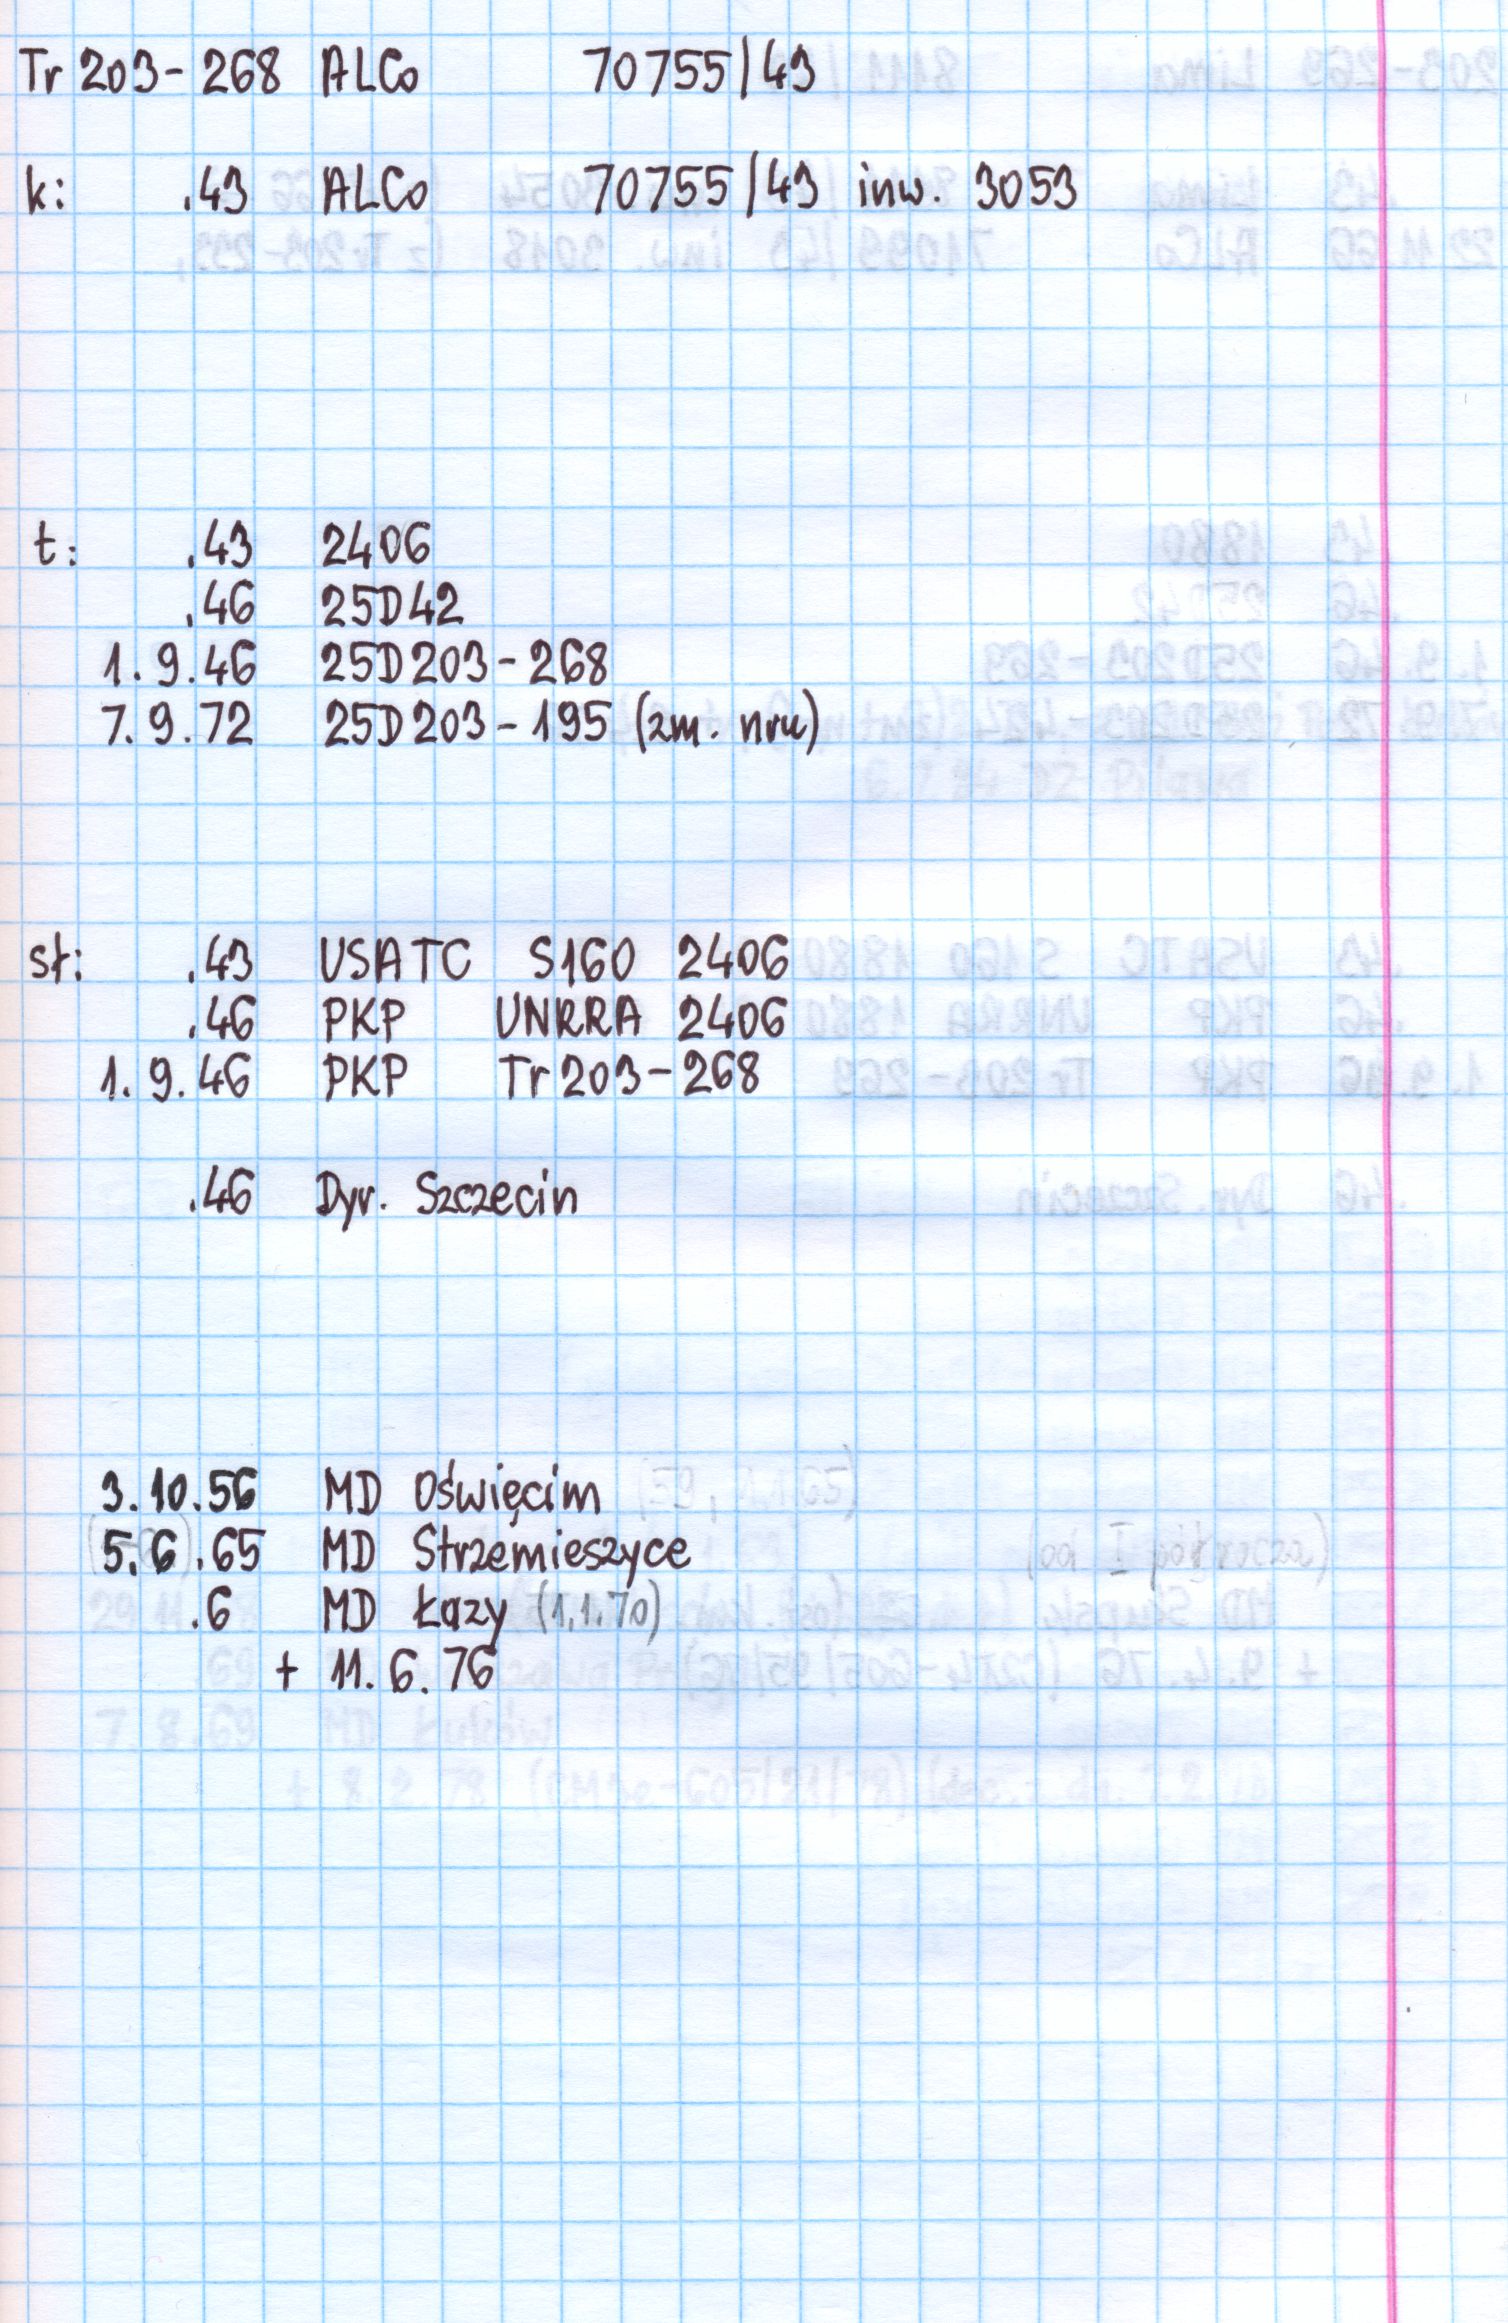 Tr 203-268 ALCo 70755/43
k: .43 ALCo 70755/43 inw. 3053
t: .43 2406
.46 25D42
1.9.46 25D203-268
7.9.72 25D203-195 (zm. nru)
sł: .43 USATC S160 2406
.46 PKP UNRRA 2406
1.9.46 PKP Tr 203-268
.46 Dyr. Szczecin
3.10.56 MD Oświęcim
5.6.65 MD Strzemieszyce
.6 MD Łazy (1.1.70)
+ 11.6.76